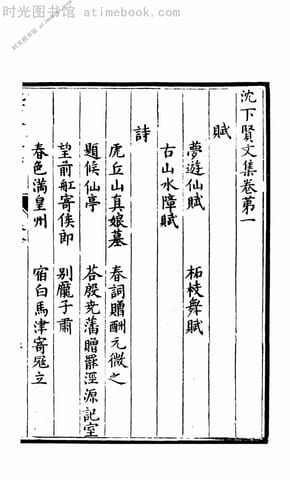 时光图书馆 atimebook.com
时光图书馆
沈下賢文集卷第一
賦
夢遊仙賦 柘枝舞賦
古山水障賦
詩
虎丘山真娘墓 春詞贈酬元微之
題候仙亭 荅殷尭藩贈罷涇源記室
望前舡寄侯郎 别龐子肅
春色滿皇州 宿白馬津寄冦立
时光图书馆 - atimebook.com